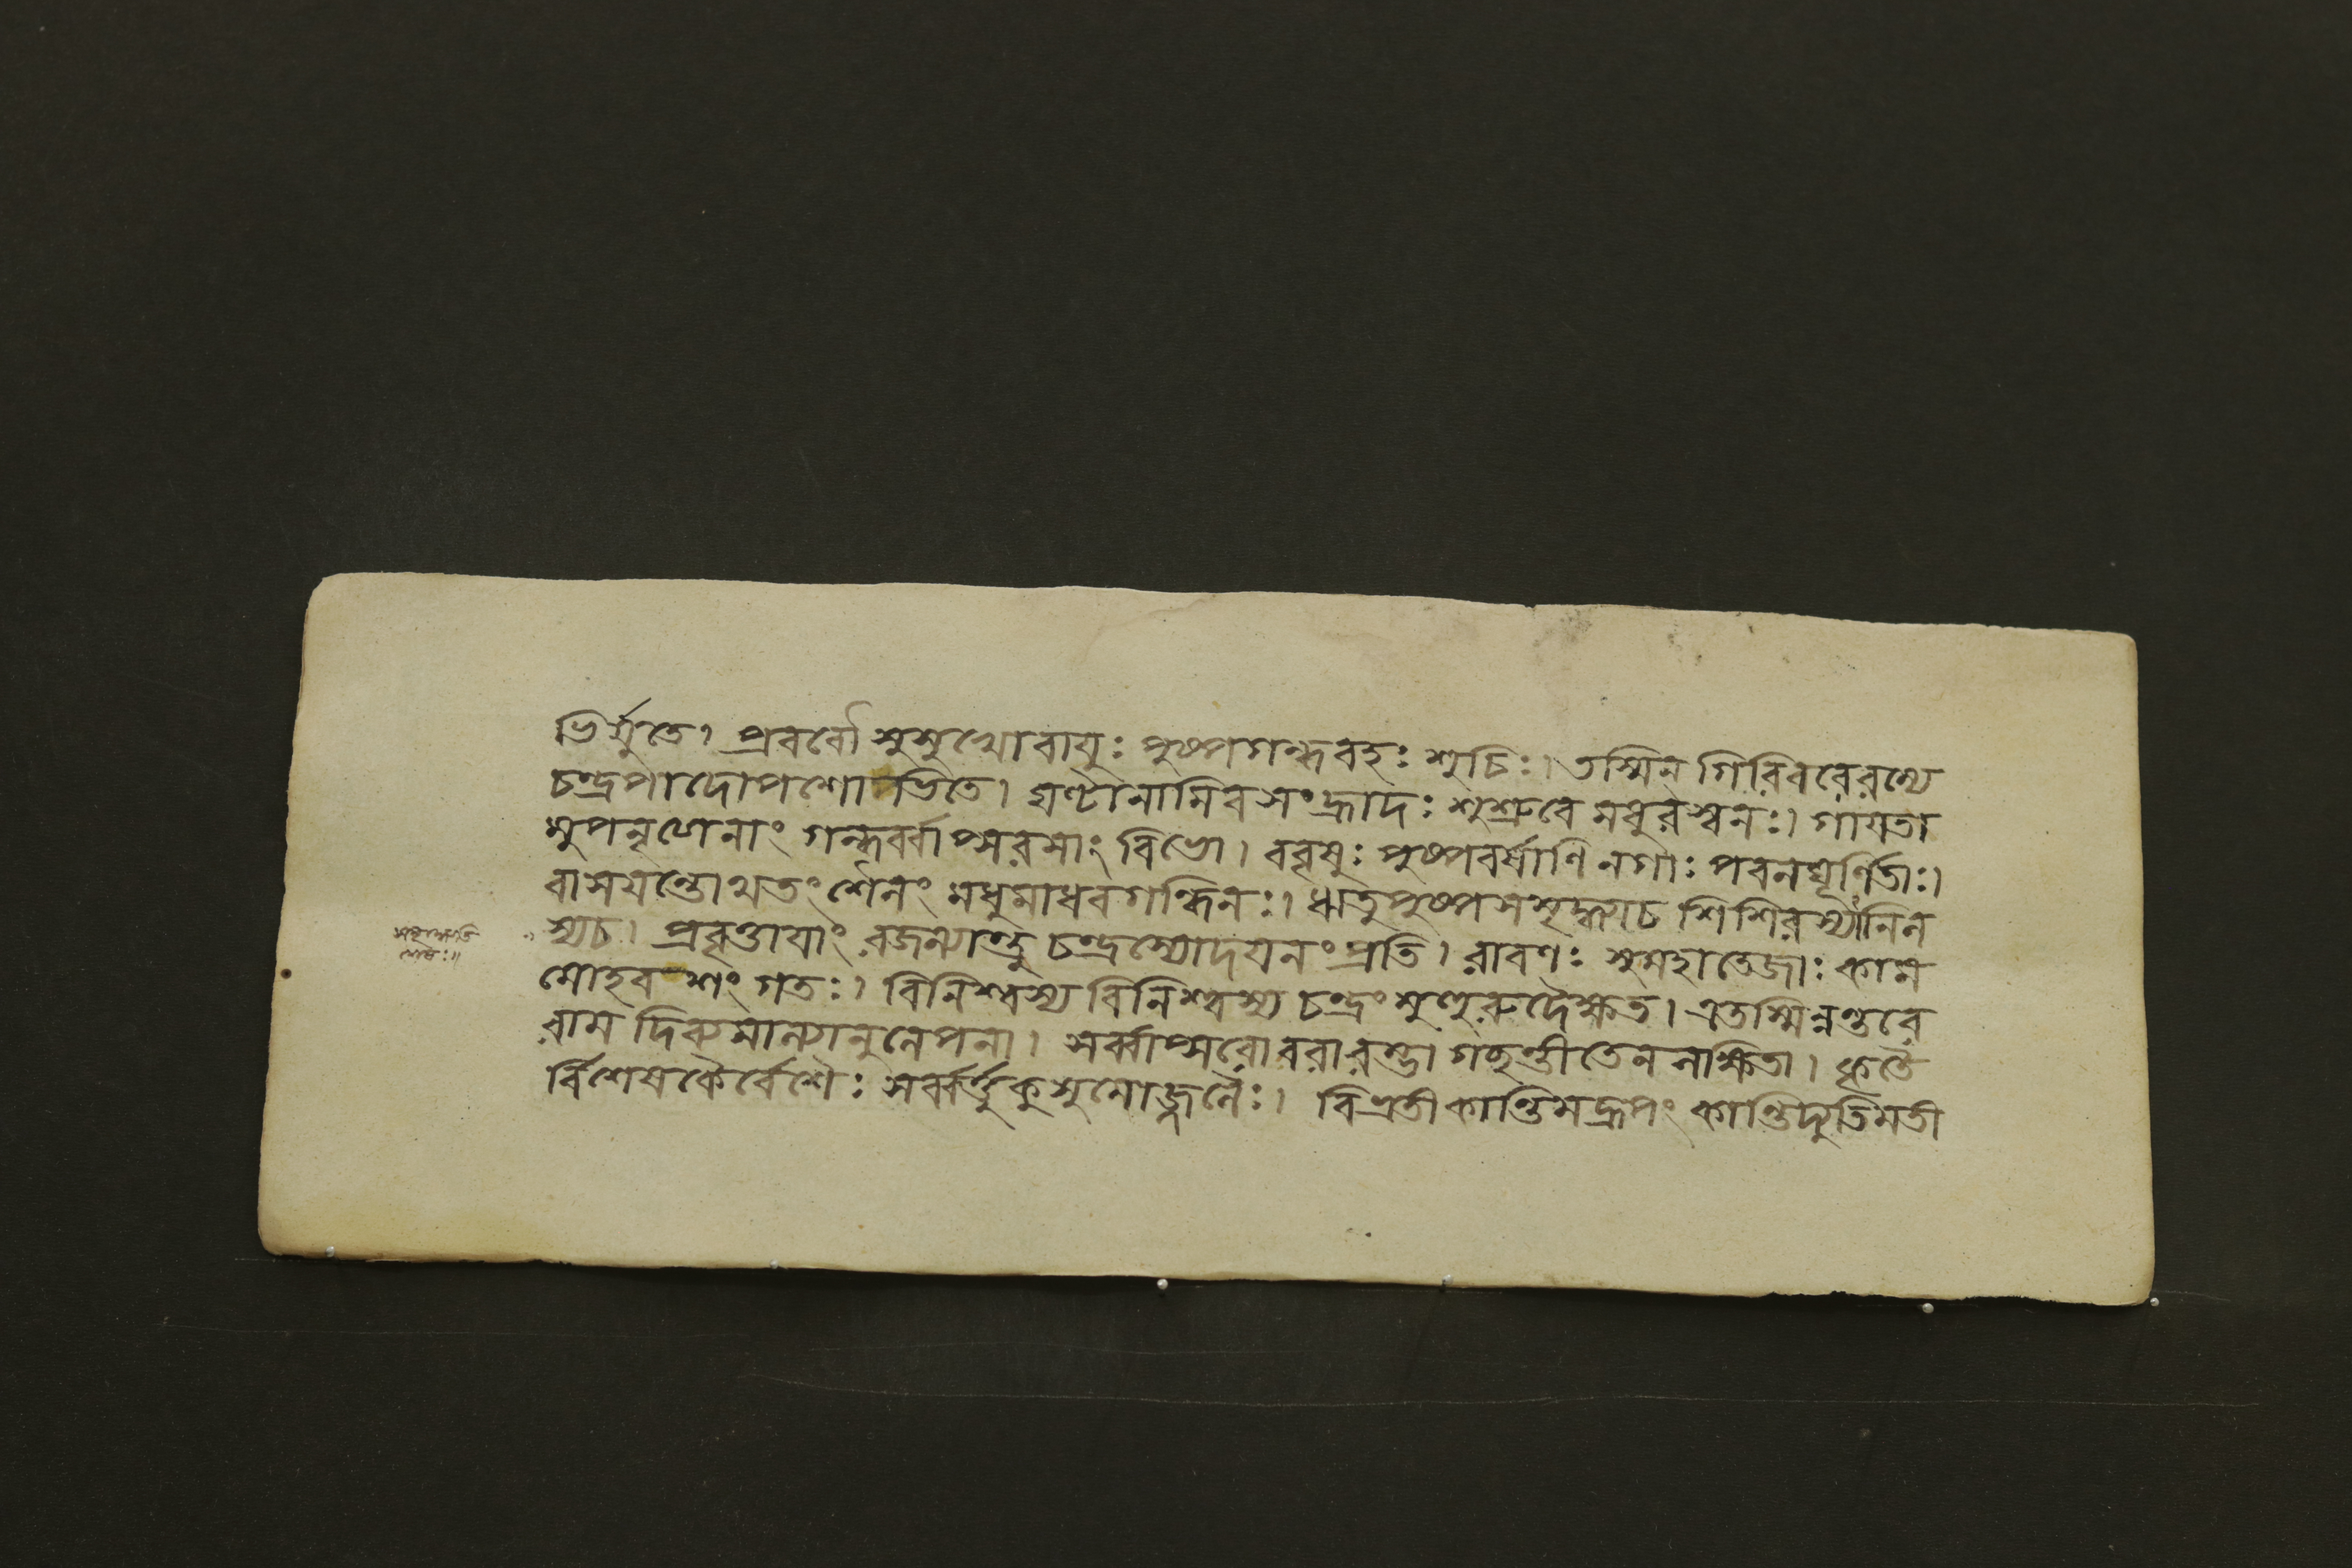 ভির্যুতে। প্রবর্বৌ সুসুখোবায়ুঃ পুষ্পগন্ধবহঃ শুচিঃ। তস্মিন গিরিবরেরম্যে
চন্দ্রপাদোপশোভিতে। ঘণ্টানামিবসংহ্রাদঃ শুশ্রুবে মধুরস্বনঃ। গায়তা
মুপনৃণেনাং গন্ধর্ব্বাপ্সরসাং বিভো। ববৃষুঃ পুষ্পবর্ষাণি নগাঃ পবনঘূর্ণিতাঃ।
বাসয়ন্তোথতং র্শেনং মধুমাধবগন্ধিনঃ। ঋতুপুষ্পসমৃদ্ধ্যাচ শিশিরস্যানিল
স্যচ। প্রবৃত্তায়াং রজন্যান্তু চন্দ্রস্যোদয়নংপ্রতি। রাবণঃ সুমহাতেজাঃ কাম
মোহবশং গতঃ। বিনিশ্বস্য বিনিশ্বস্য চন্দ্রং মুহুরুদৈক্ষত। এতস্মিন্নন্তরে
রাম দিব্যমাল্যানুলেপনা। সর্ব্বাপ্সরোবরারম্ভা গচ্ছন্তীতেনলক্ষিতা। কৃতৈ
র্বিশেষকৈর্বেশৈঃ সর্ব্বর্ত্তুকুসুমোজ্জ্বলৈঃ। বিভ্রতীকান্তিমদ্রূপং কান্তিদ্যুতিমতী